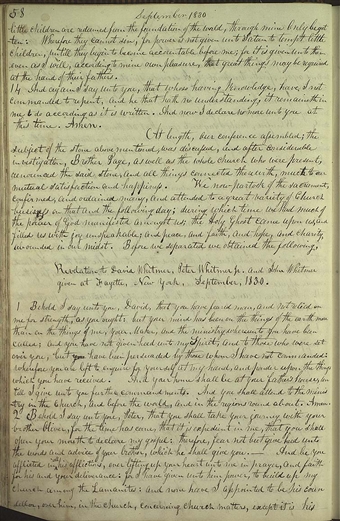 58
September 1830
little children are redeemed from the foundation of the world, through mine Only begot
ten: Wherefore they cannot sin, for power is not given unto Satan to tempt little
children, until they begin to become accountable before me; for it is given unto them
even as I will, according to mine own pleasure, that great things may be required
at the hand of their fathers.
14. And again I say unto you, that whoso having knowledge, have I not
commanded to repent, and he that hath no understanding, it remaineth in
me to do according as it is written. And now I declare no more unto you at
this time. Amen.
At length, our conference assembled; the
subject of the stone above mentioned, was discussed, and after considerable
investigation, Brother Page, as well as the whole church who were present,
renounced the said stone, and all things connected therewith, much to our
mutual satisfaction and happiness. We now partook of the sacrament,
confirmed, and ordained many, and attended to a great variety of Church
business on that and the following day; during which time we had much of
the power of God manifested amongst us; the Holy Ghost came upon us, and
filled us with joy unspeakable; and peace, and faith, and hope, and charity
abounded in our midst. Before we separated we obtained the following.
Revelation to David Whitmer, Peter Whitmer jr. and John Whitmer
given at Fayette, New York, September, 1830.
1 Behold I say unto you, David, that you have feared man, and not relied on
me for strength, as you ought: but your mind has been on the things of the earth more
than on the things of me, your Maker, and the ministry whereunto you have been
called; and you have not given heed unto my Spirit, and to those who were set
over you, but you have been persuaded by those whom I have not commanded:
wherefore you are left to enquire for yourself at my hand, and ponder upon the things
which you have received. And your home shall be at your fathers house, un
til I give unto you further commandments. And you shall attend to the minis
try in the church, and before the world, and in the regions round about. Amen.
2 Behold I say unto you, Peter, that you shall take your journey with your
brother Oliver, for the time has come, that it is expedient in me, that you shall
open your mouth to declare my gospel: therefore, fear not but give heed unto
the words and advice of your brother, which he shall give you. And be you
afflicted in all his afflictions, ever lifting up your heart unto me in prayer, and faith
for his and your deliverance: for I have given unto him power, to build up my
church among the Lamanites: and none have I appointed to be his coun
sellor, over him, in the church, concerning church matters, except it is his